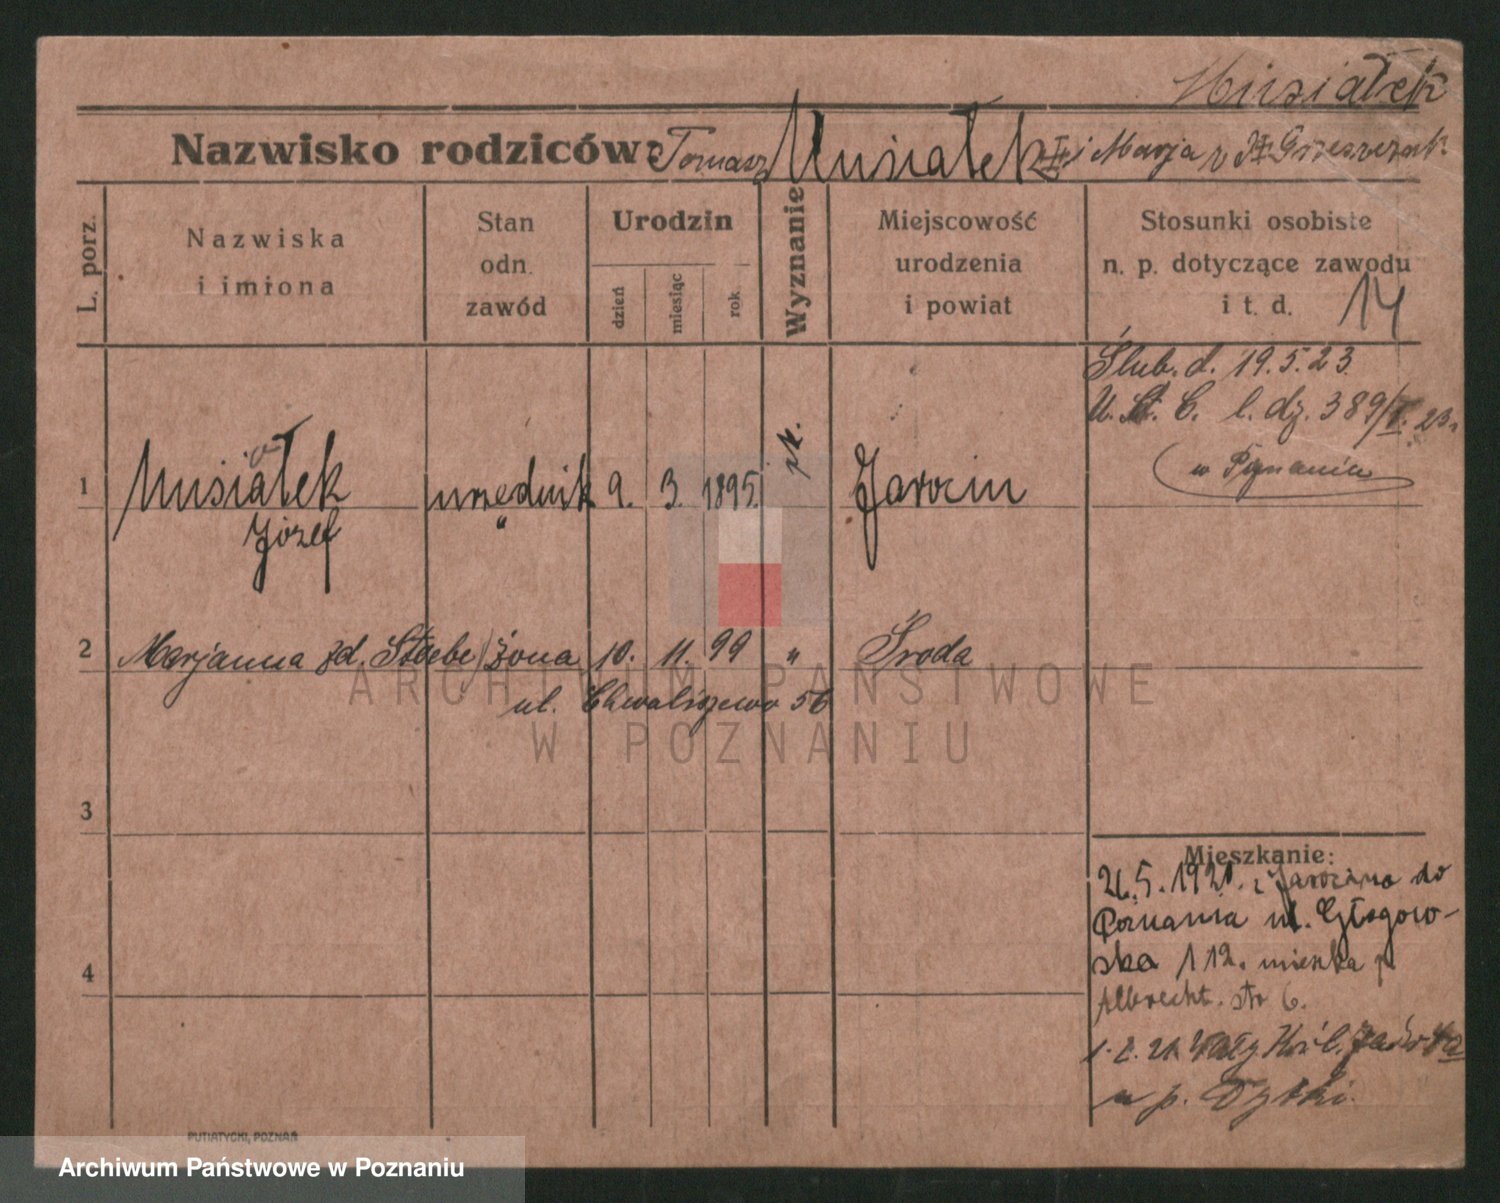 Musiałek
Nazwisko rodziców: Tomasz Musiałek i Marja z
L. porz.
Nazwiska
i imiona
Stan
odn.
zawód
Urodzin
dzień
miesiąc
rok.
Wyznanie
Miejscowość
urodzenia
i powiat
Stosunki osobiste
n. p. dotyczące zawodu
i t. d.
14
Ślub. d. 19.5.23.
U. St. C. l. dz. 389/ 23.
w Poznaniu
1 Musiałek urzędnik 9. 3. 1895. rk. Jarocin
Józef "
2 Marjanna zd. Stube żona 10. 11. 99 " Środa
ul. Chwaliszewo 56
3
4
Mieszkanie:
21.5.1920. z Jarocina do
Poznania ul. Głogow-
ska 112. mieszka p.
Albrecht. str 6.
1.2.21 Wały Król. Jadw.
u p.
PUTIATYCKI, POZNAŃ
ARCHIWUM PAŃSTWOWE
W POZNANIU
Archiwum Państwowe w Poznaniu